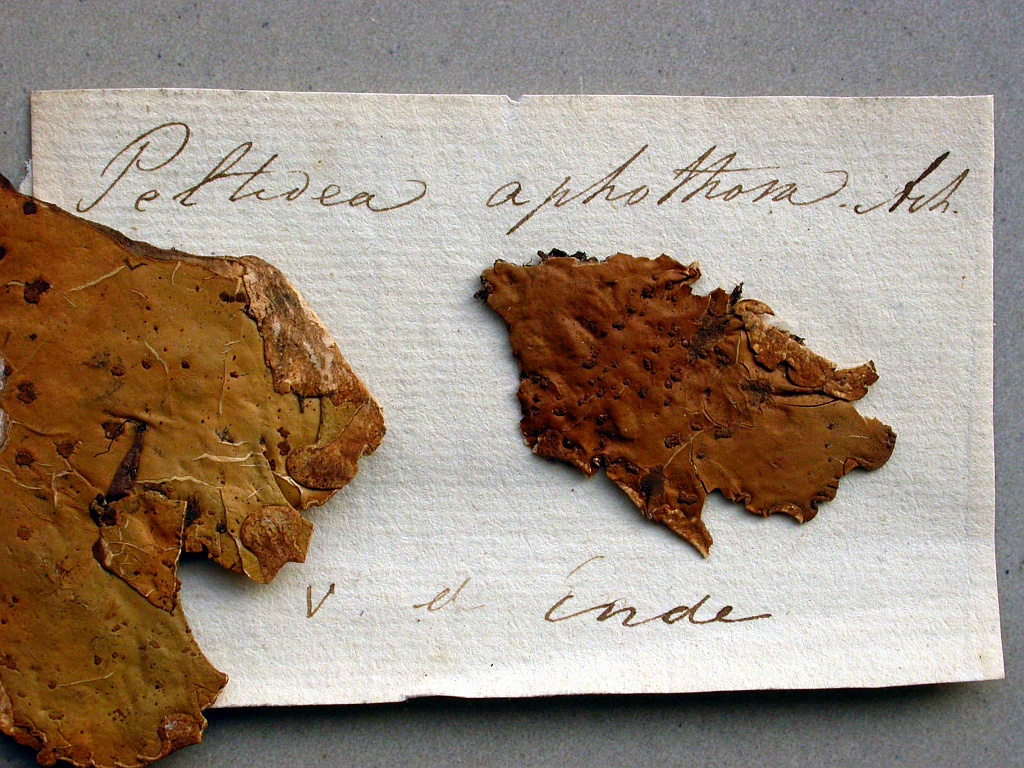 Peltidea aphothosa. Ach.
v d Ende